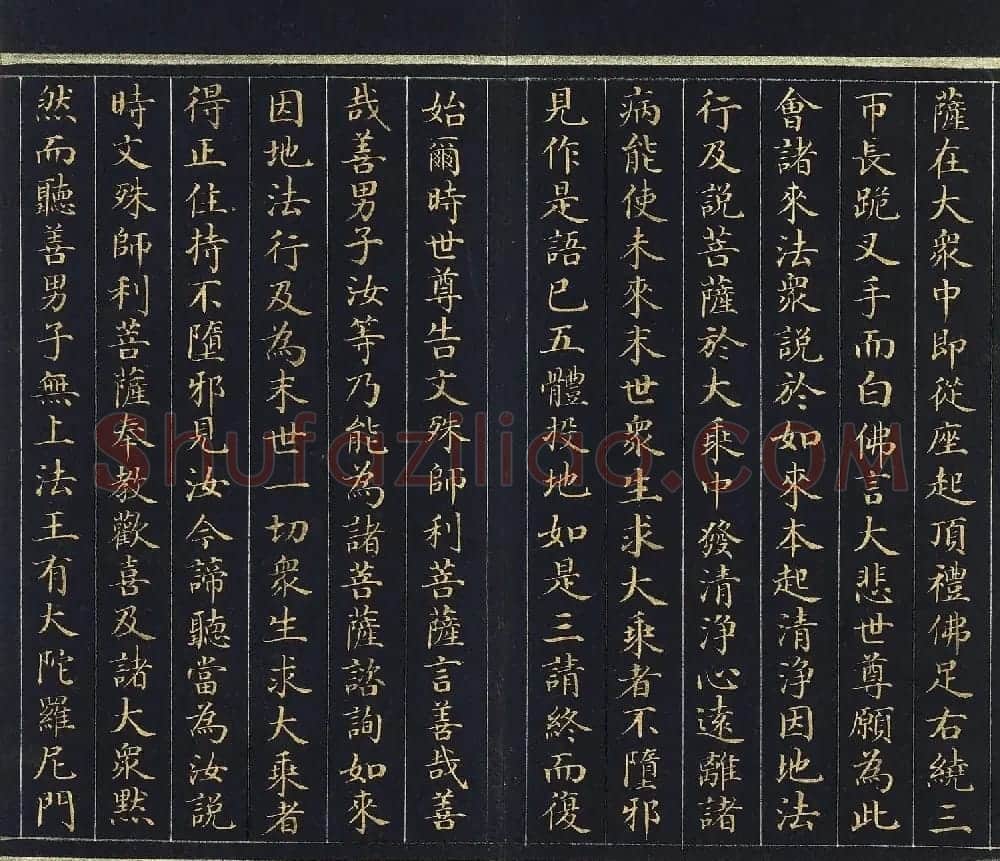 薩在大衆中即從座起頂禮佛足右繞三
帀長跪叉手而白佛言大悲世尊願為此
會諸來法衆説於如來本起清淨因地法
行及説菩薩於大乘中發清淨心遠離諸
病能使未來末世衆生求大乘者不墮邪
見作是語已五體投地如是三請終而復
始爾時世尊告文殊師利菩薩言善哉善
哉善男子汝等乃能為諸菩薩諮詢如來
因地法行及為末世一切衆生求大乘者
得正住持不墮邪見汝今諦聽當為汝説
時文殊師利菩薩奉教歡喜及諸大衆默
然而聽善男子無上法王有大陀羅尼門
Shufaziliao.COM